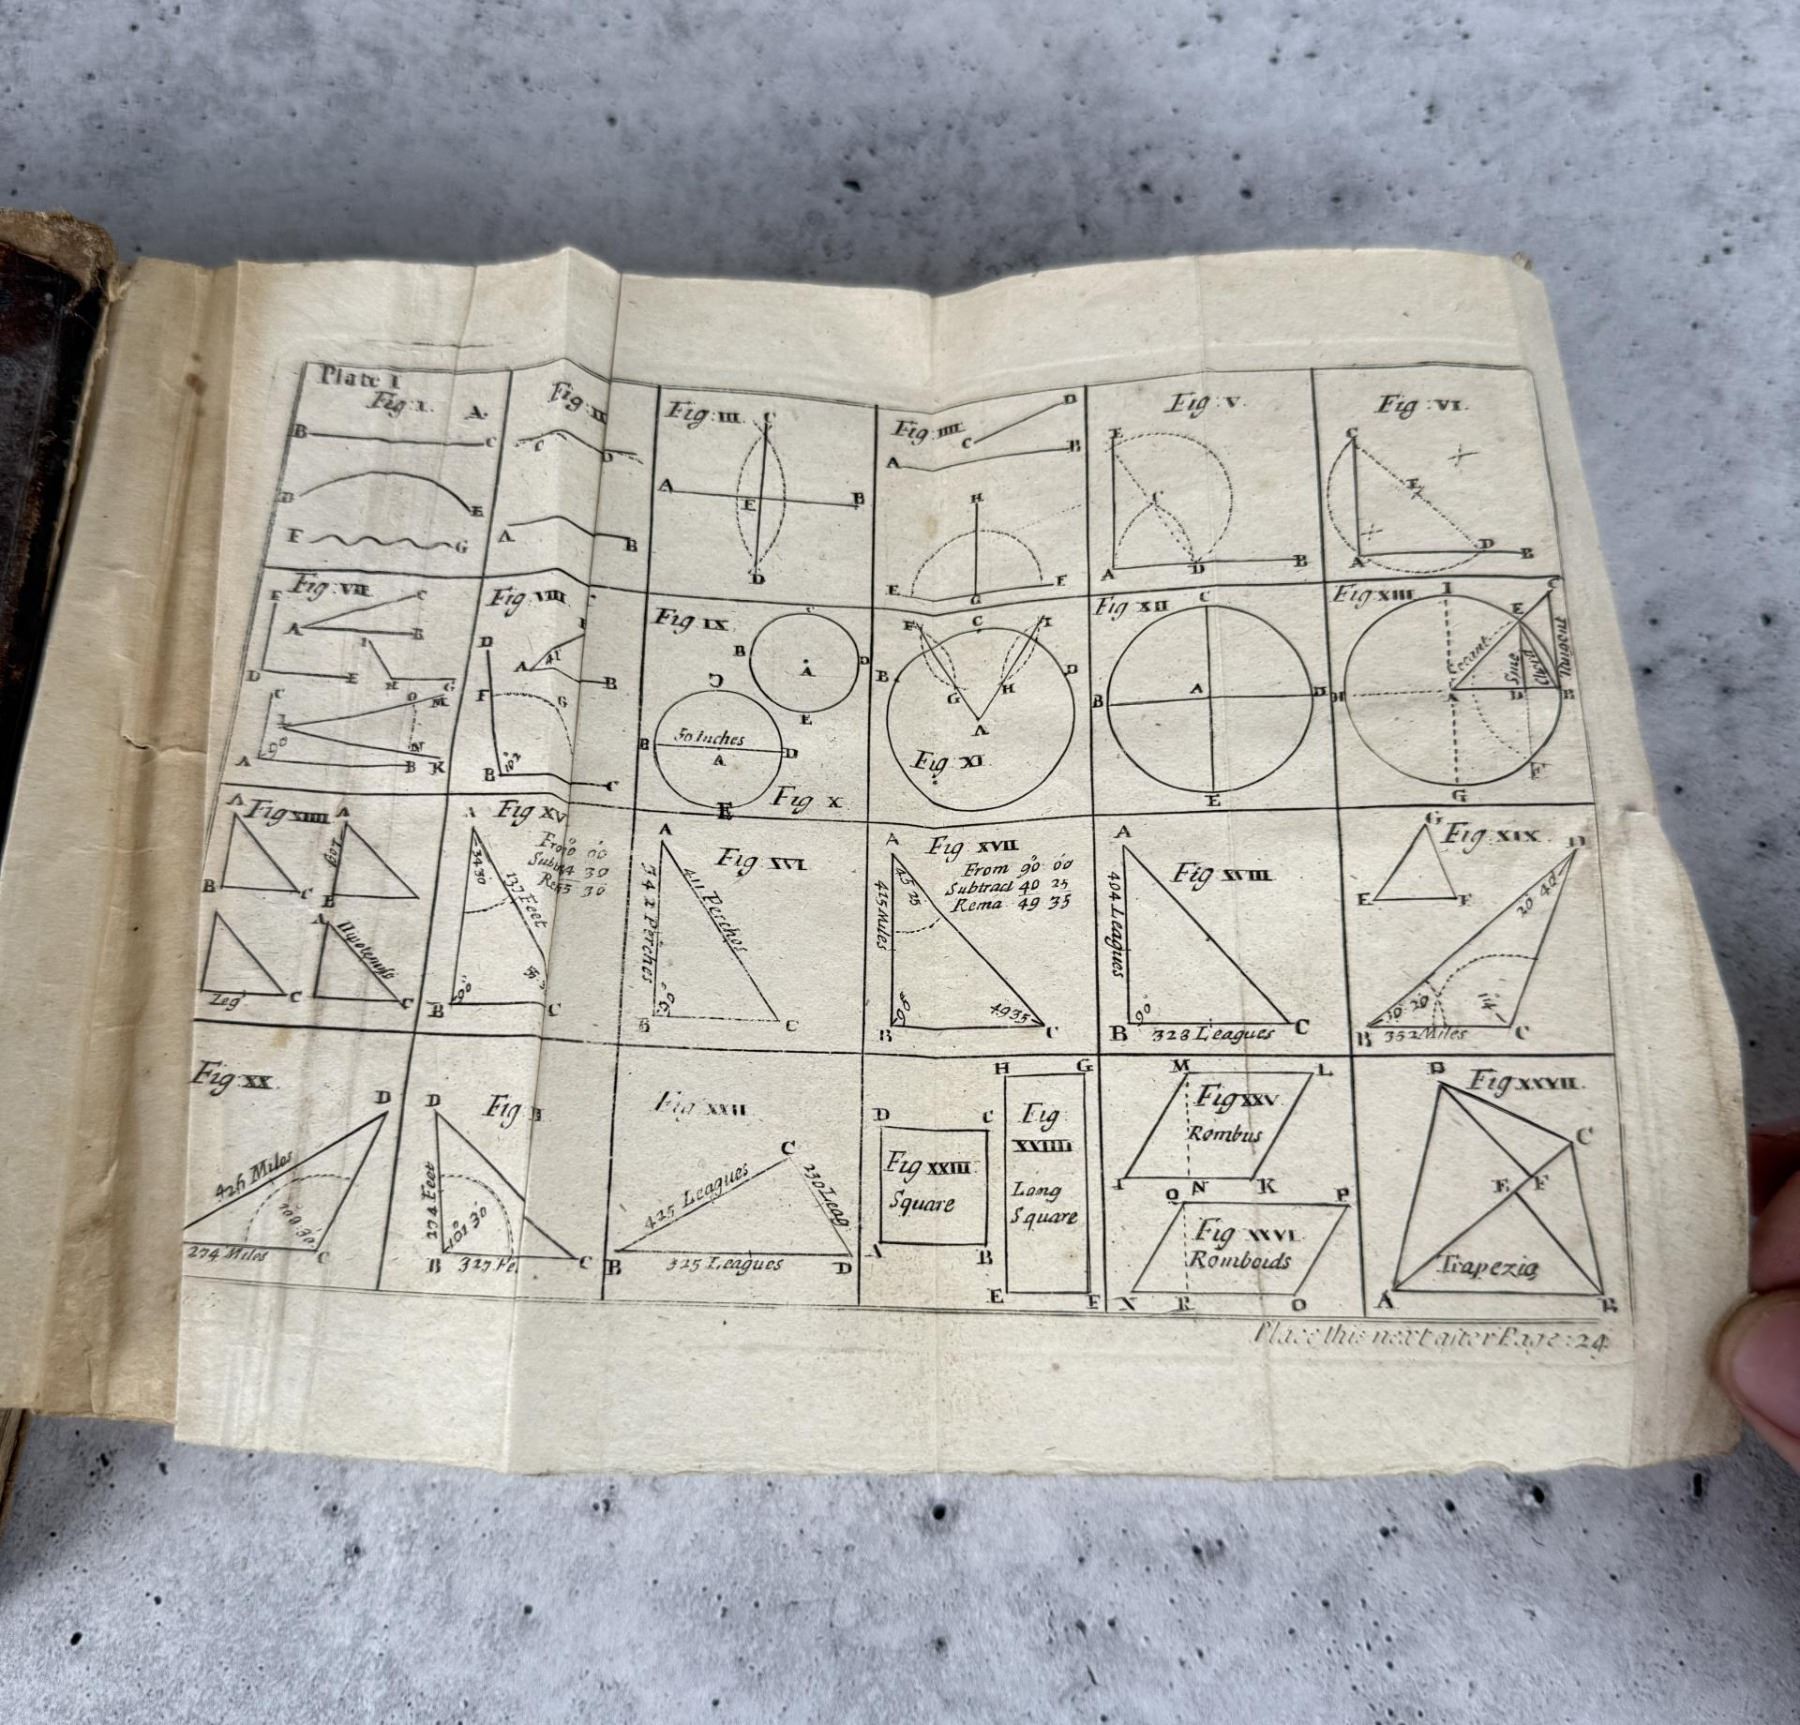 Plate I
Fig: I. A.
B C
D E
F G
Fig II
C D
A B
Fig: III. C
A E B
D
Fig IIII
C D
A B
H
E G F
Fig: V.
E
C
A D B
Fig: VI.
C
E
A D B
Fig: VII
F C
A B
I
D E H G
C O M
L
90
A B N K
Fig VIII
D
A 41 B
F G
B 102 C
Fig IX
C
B A D
E
C
50 Inches
B A D
E
Fig X
F C I
B D
G H
A
Fig XI
Fig XII
C
B A D
E
Fig XIII
I C
E
Secant
Sine
Chord
Tangent
H A D B
F
G
Fig XIIII
A A
Leg
B C B
A
Hypotenuse
Leg C C
Fig XV
A
34 30
137 Feet
90
B C
Fig XVI
A
342 Perches
411 Perches
90
B C
Fig XVII
A
From 90 00
Subtract 40 25
Rema 49 35
415 Miles
90
49 35
B C
Fig XVIII
A
404 Leagues
90
B 328 Leagues C
Fig XIX
G D
E F
20 40
B 352 Miles C
Fig XX
D
426 Miles
274 Miles C
Fig
D
274 Feet
101 30
B 327 Fe C
Fig XXII
C
425 Leagues
230 Leag
B 325 Leagues D
D C
Fig XXIII
Square
A B
H G
Fig
XXIIII
Long
Square
E F
M L
Fig XXV
Rombus
I N K
Q P
Fig XXVI
Romboids
X R O
Fig XXVII
D
C
E F
Trapezia
A B
Place this next after Page: 24